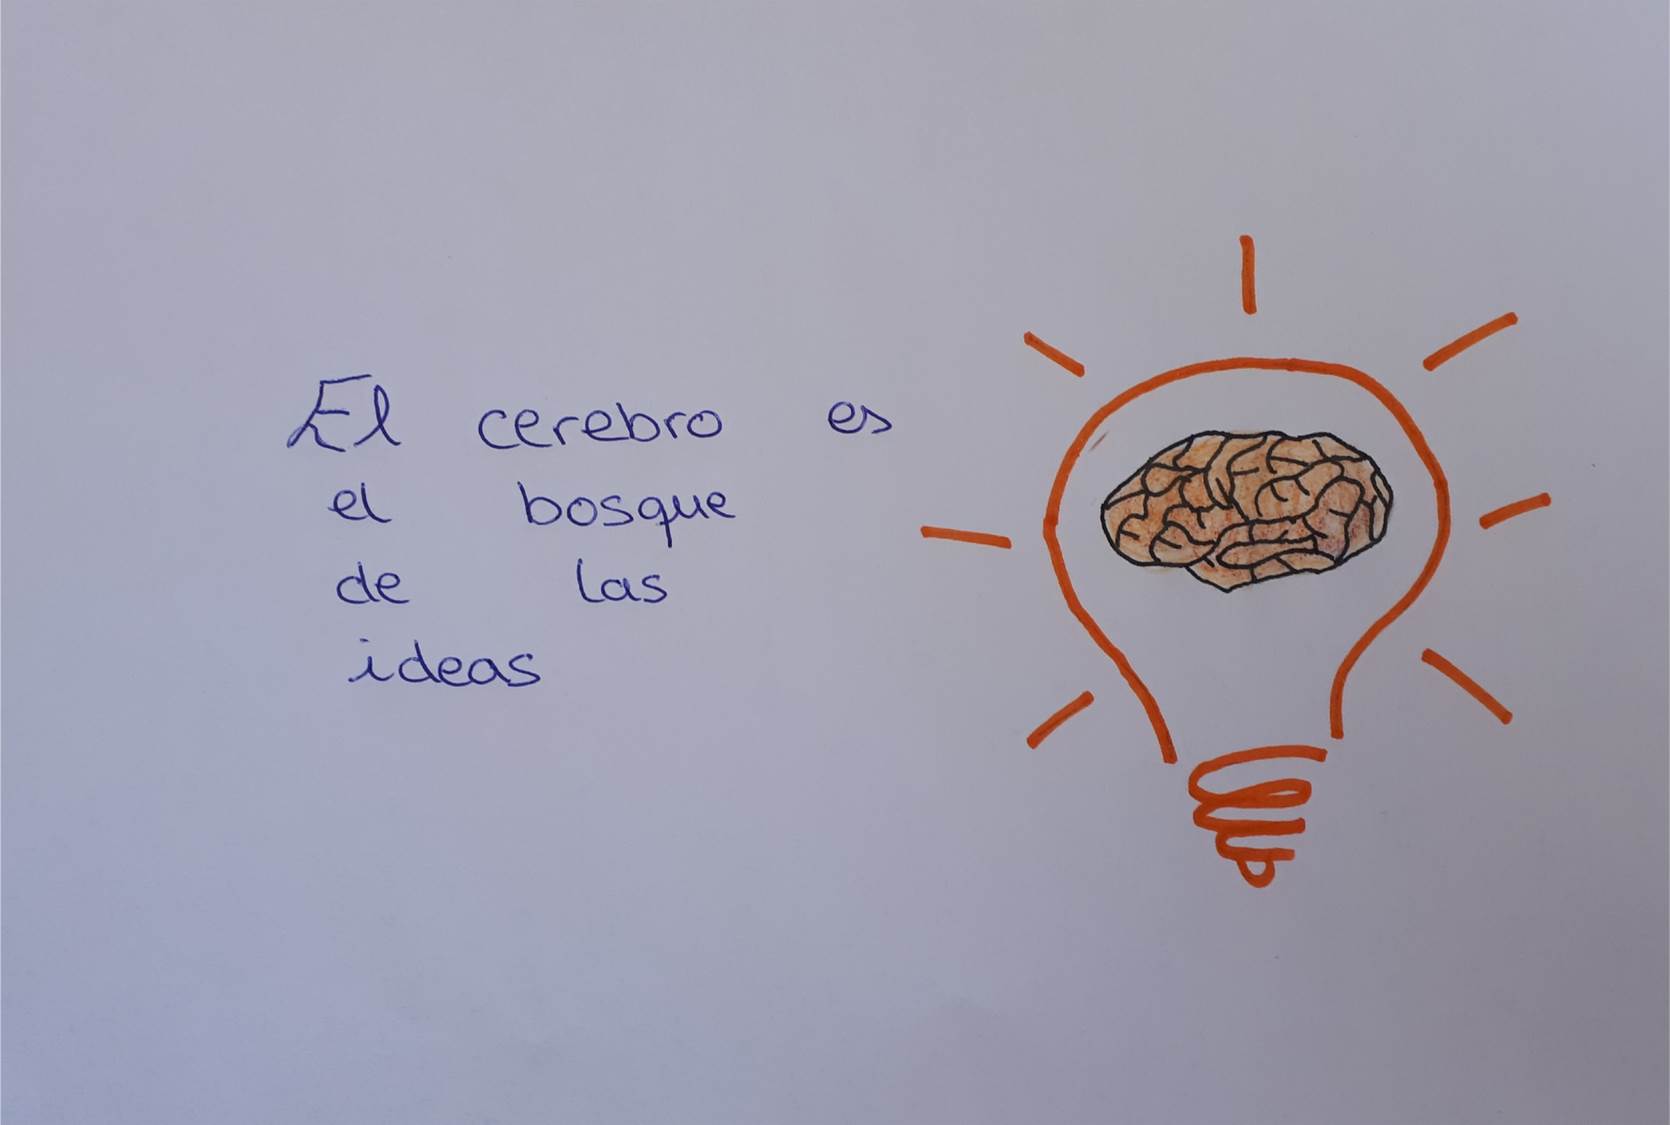 El cerebro es
el bosque
de las
ideas